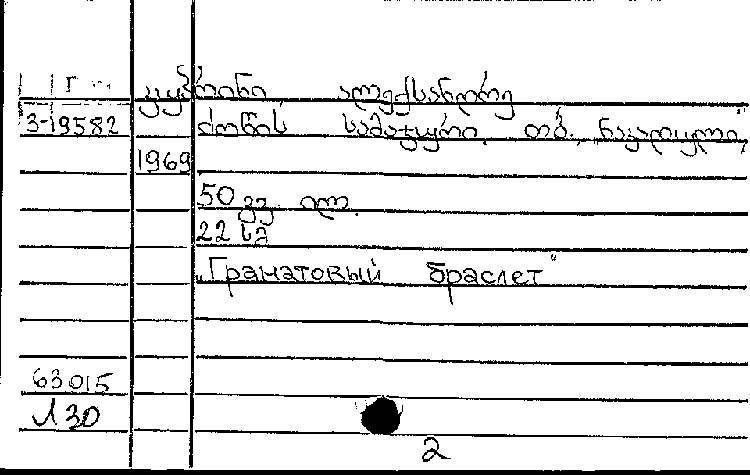 კუპრინი ალექსანდრე
3-19582 ძოწის სამაჯური. თბ., ნაკადული,
1969
50 გვ. ილ.
22 სმ
„Гранатовый браслет"
63015
130
2